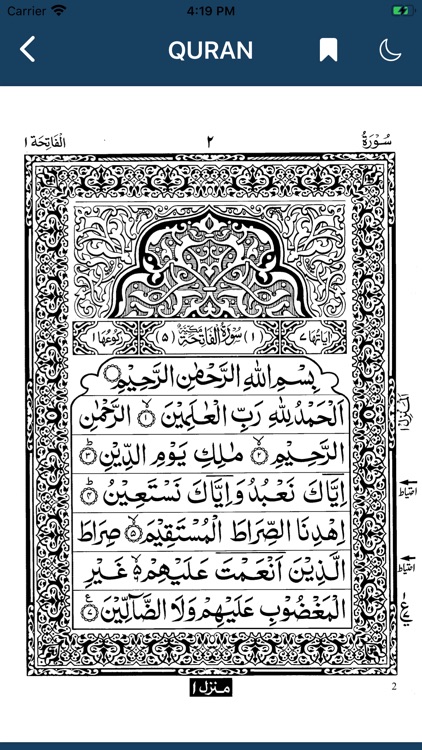 Carrier 4:19 PM
QURAN
سُوْرَةُ ٢ اَلْفَاتِحَة ١
اٰيَاتُهَا ٧ (١) سُوْرَةُ الْفَاتِحَةِ مَكِّيَّةٌ (٥) رُكُوْعُهَا ١
بِسْمِ اللّٰهِ الرَّحْمٰنِ الرَّحِيْمِ
اَلْحَمْدُ لِلّٰهِ رَبِّ الْعٰلَمِيْنَ ١ الرَّحْمٰنِ
الرَّحِيْمِ ٢ مٰلِكِ يَوْمِ الدِّيْنِ ٣
اِيَّاكَ نَعْبُدُ وَاِيَّاكَ نَسْتَعِيْنُ ٤
اِهْدِنَا الصِّرَاطَ الْمُسْتَقِيْمَ ٥ صِرَاطَ
الَّذِيْنَ اَنْعَمْتَ عَلَيْهِمْ ٦ غَيْرِ
الْمَغْضُوْبِ عَلَيْهِمْ وَلَا الضَّآلِّيْنَ ٧
اَلْمَنْزِل ١
احتياط
احتياط
منزل ١
2